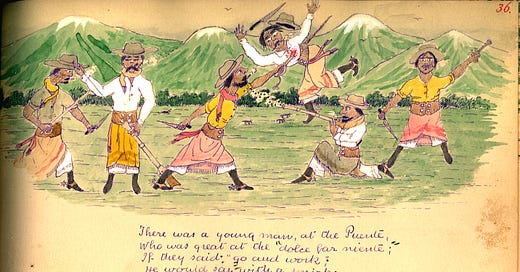 36.
There was a young man, at the Puente,
Who was great at the "dolce far niente;"
If they said; "go and work;"
He would say, with a